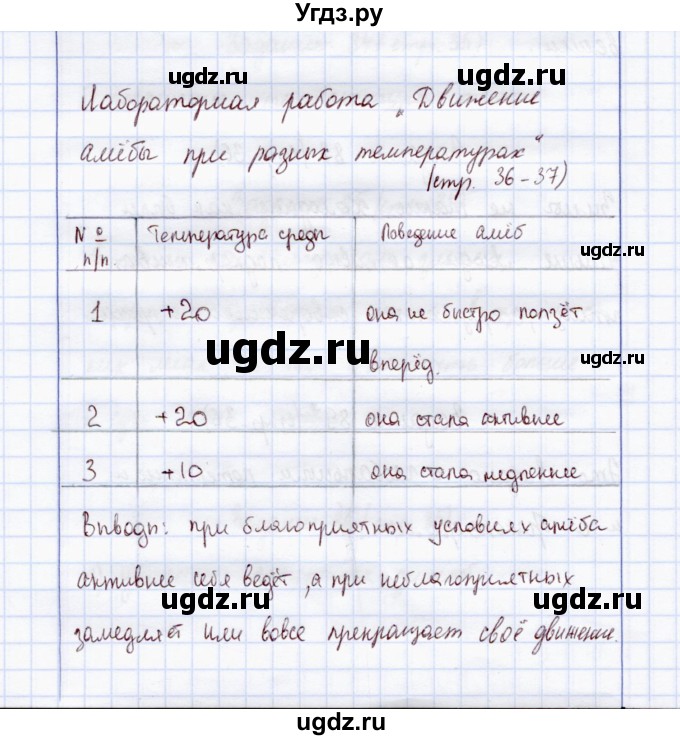 Угдз.ру
ugdz.ru
ugdz.ru
Лабораторная работа „Движение
ugdz.ru
амёбы при разных температурах“
(стр. 36-37)
№ п/п | Температура среды | Поведение амёб
1 | +20 | она не быстро ползёт
ugdz.ru
ugdz.ru
вперёд.
2 | +20 | она стала активнее
ugdz.ru
3 | +10 | она стала медленнее
Выводы: при благоприятных условиях амёба
активнее себя ведёт, а при неблагоприятных
ugdz.ru
ugdz.ru
замедляет или вовсе прекращает своё движение.
ugdz.ru
ugdz.ru
ugdz.ru